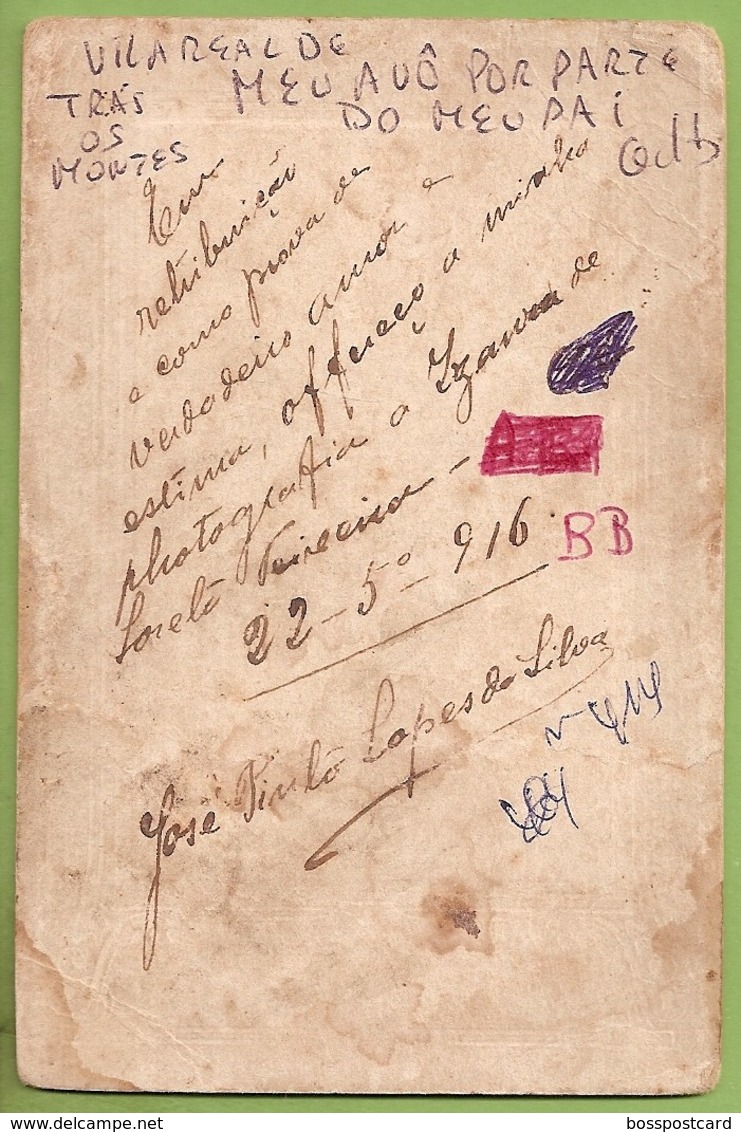 VILA REAL DE
TRÁS
OS
MONTES
MEU AVÔ POR PARTE
DO MEU PAI
Em
retribuição
e como prova de
verdadeiro amor e
estima, offereço a minha
photografia a Izaura de
Loreto Ferreira -
22-5º-916
BB
José Pinto Lopes da Silva
bosspostcard